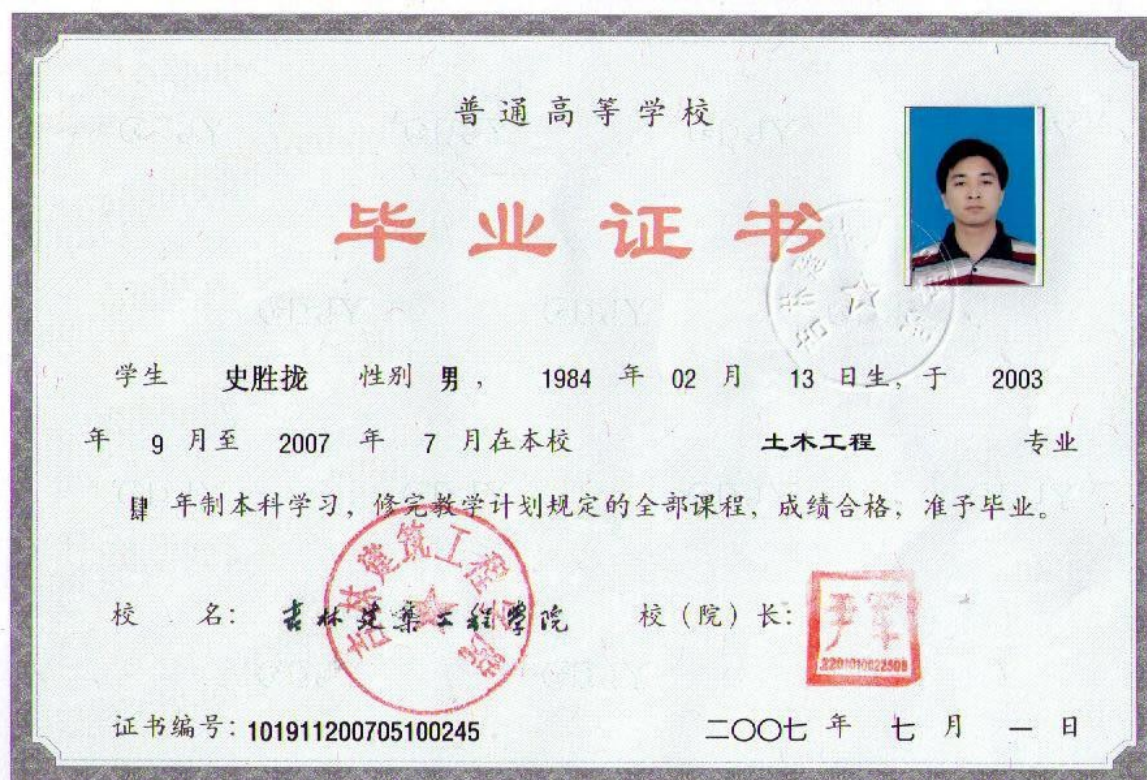 普通高等学校
毕业证书
学生 史胜拢 性别 男 , 1984 年 02 月 13 日生, 于 2003
年 9 月至 2007 年 7 月在本校 土木工程 专业
肆 年制本科学习, 修完教学计划规定的全部课程, 成绩合格, 准予毕业。
吉林建筑工程学院
校 名: 吉林建築工程學院 校(院)长: 尹军
2201010022508
证书编号: 101911200705100245 二〇〇七 年 七 月 一 日